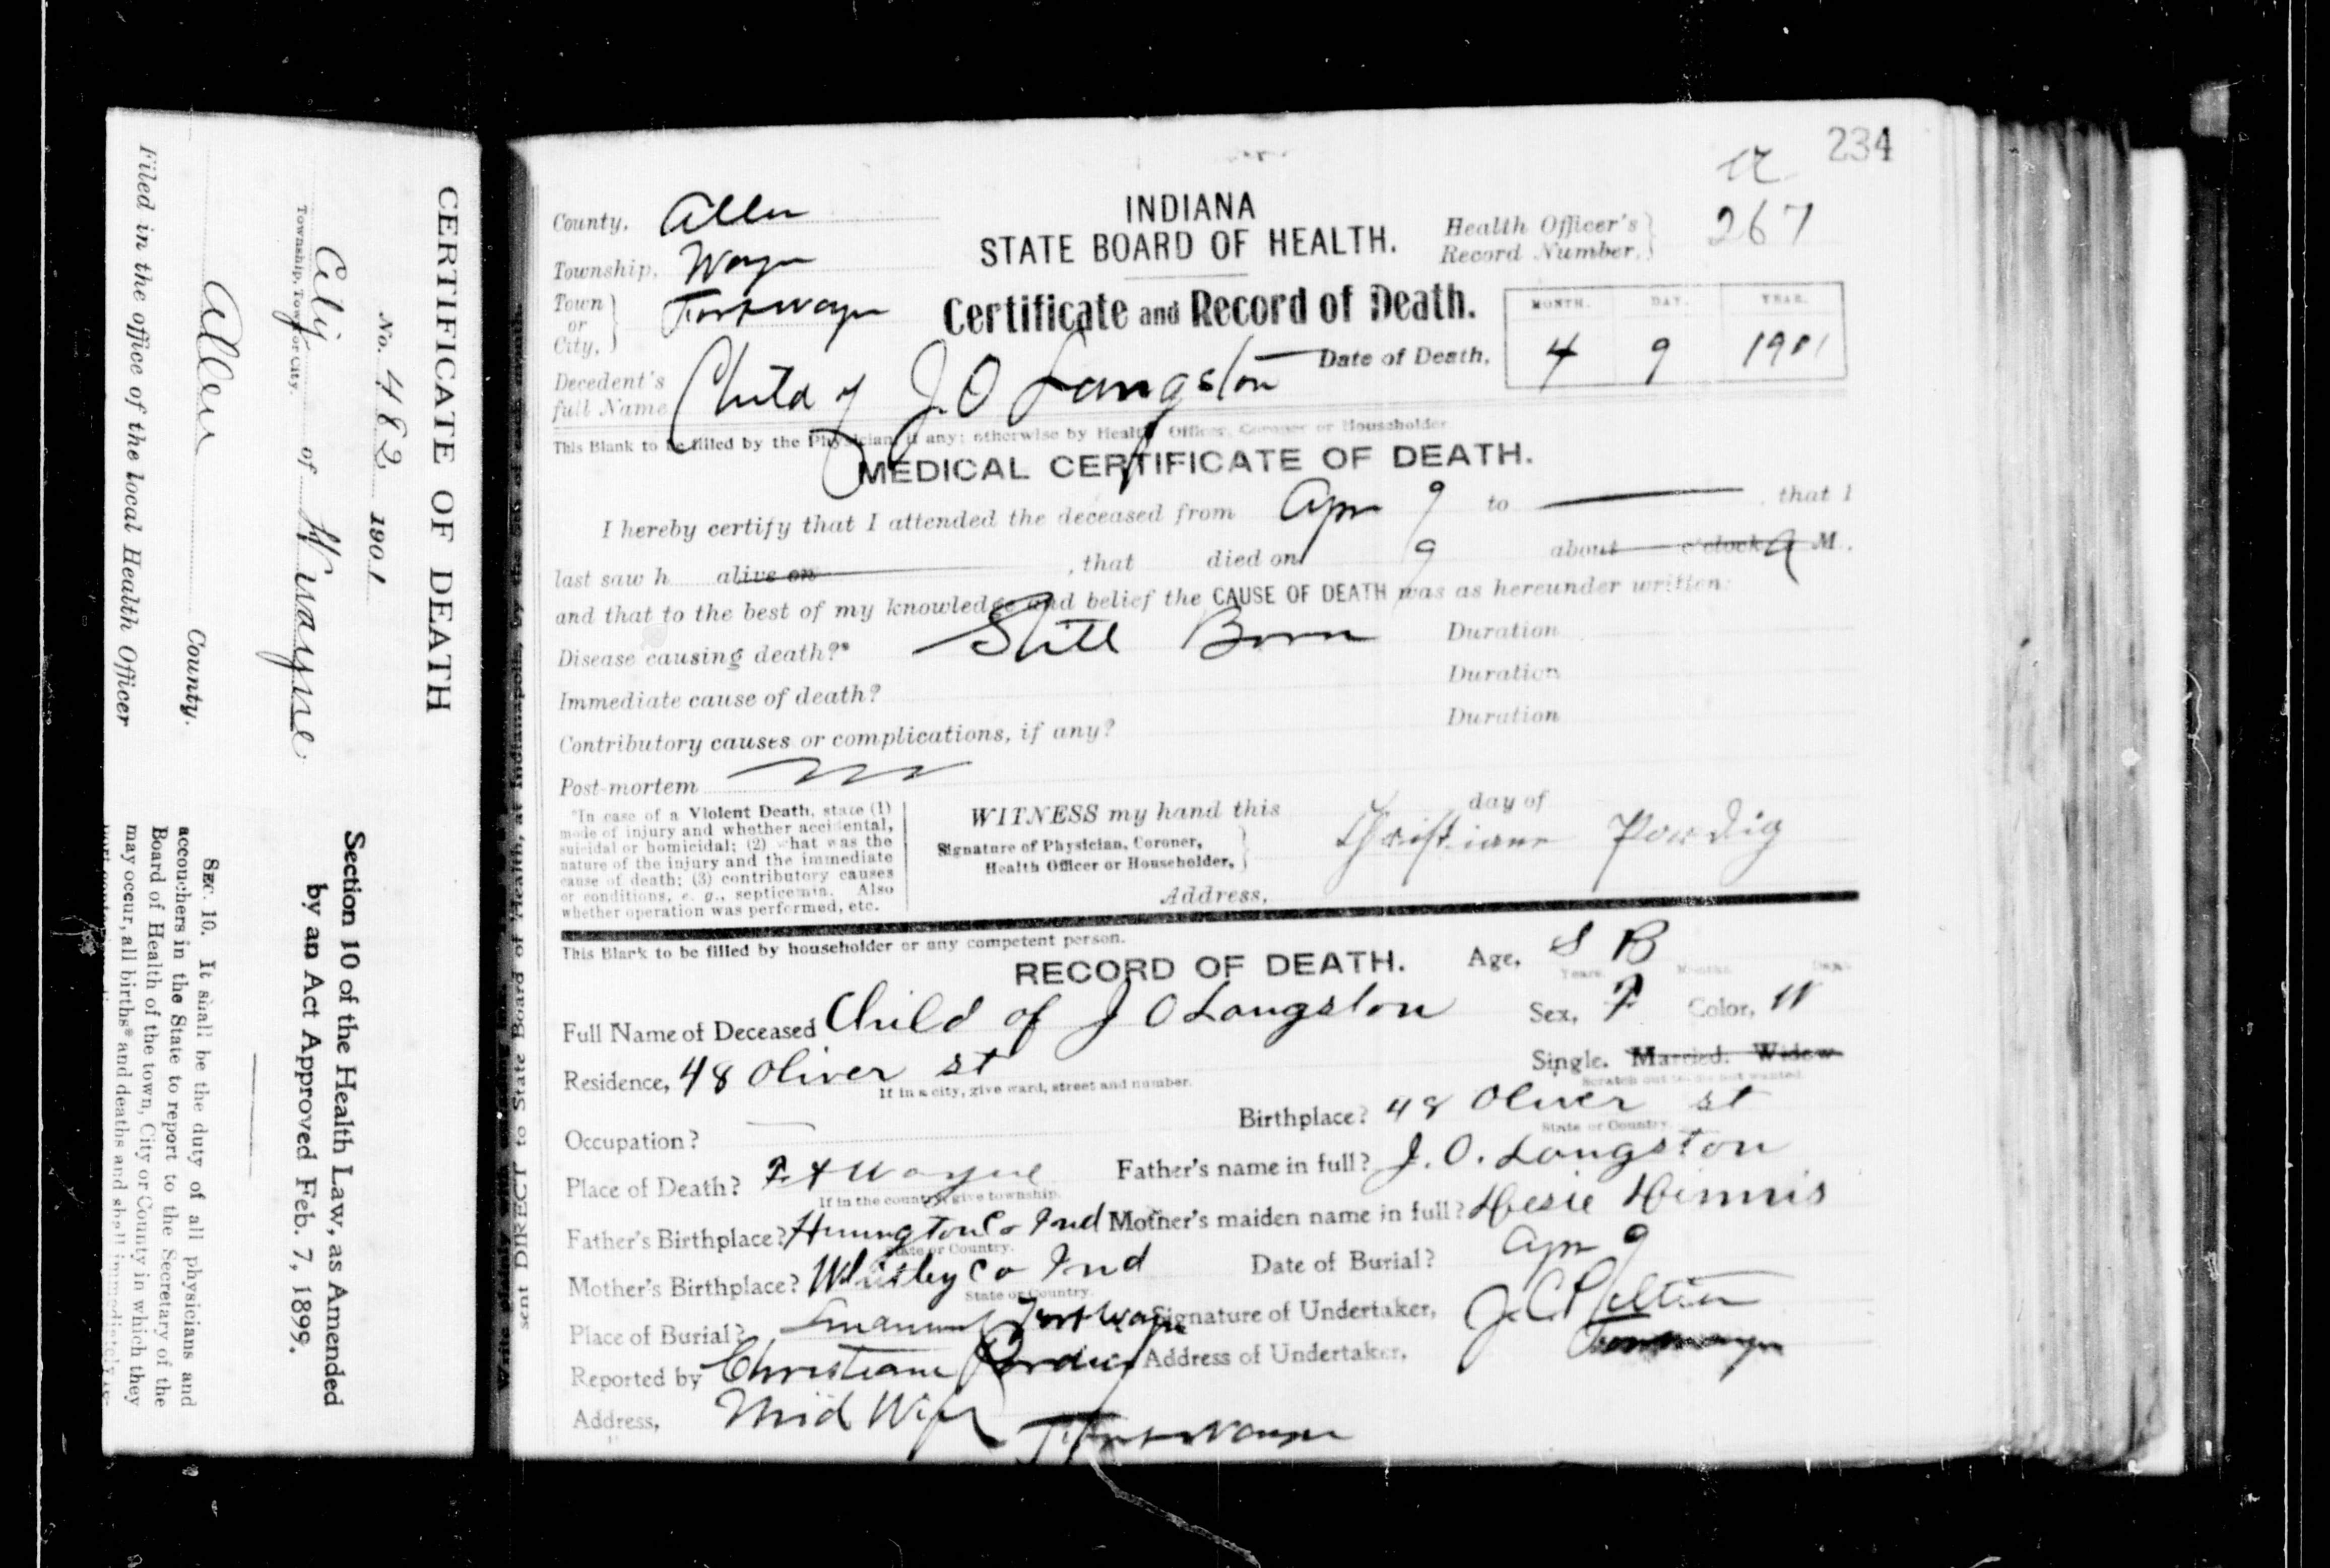 CERTIFICATE OF DEATH
No. 482 1901
City of Ft Wayne
Township, Town or City.
Allen County.
Filed in the office of the local Health Officer
Section 10 of the Health Law, as Amended
by an Act Approved Feb. 7, 1899.
SEC. 10. It shall be the duty of all physicians and
accouchers in the State to report to the Secretary of the
Board of Health of the town, City or County in which they
may occur, all births* and deaths and shall immediately
sent DIRECT to State Board of Health, at Indianapolis, by the
234
INDIANA
STATE BOARD OF HEALTH.
Health Officer's
Record Number, 267
County, Allen
Township, Wayne
Town or City, Fort Wayne
Certificate and Record of Death.
MONTH. DAY. YEAR.
Date of Death, 4 9 1901
Decedent's full Name Child of J.O Langston
This Blank to be filled by the Physician, if any; otherwise by Health Officer, Coroner or Householder
MEDICAL CERTIFICATE OF DEATH.
I hereby certify that I attended the deceased from Apr 9 to — that I
last saw h alive on , that died on 9 about o'clock a M.,
and that to the best of my knowledge and belief the CAUSE OF DEATH was as hereunder written:
Disease causing death?* Still Born Duration
Immediate cause of death? Duration
Contributory causes or complications, if any? Duration
Post-mortem no
*In case of a Violent Death, state (1)
mode of injury and whether accidental,
suicidal or homicidal; (2) what was the
nature of the injury and the immediate
cause of death; (3) contributory causes
or conditions, e. g., septicemia. Also
whether operation was performed, etc.
WITNESS my hand this day of
Signature of Physician, Coroner,
Health Officer or Householder, Christiane
Address,
This Blank to be filled by householder or any competent person.
RECORD OF DEATH. Age, S B
Years. Months. Days.
Full Name of Deceased Child of J O Langston Sex, F Color, W
Residence, 48 Oliver st Single. Married. Widow
If in a city, give ward, street and number. Scratch out terms not wanted.
Occupation? — Birthplace? 48 Oliver st
State or Country.
Place of Death? Ft Wayne Father's name in full? J. O. Langston
If in the country, give township.
Father's Birthplace? Huntington Co Ind Mother's maiden name in full?
State or Country.
Mother's Birthplace? Whitley Co Ind Date of Burial? Apr 9
State or Country.
Place of Burial? Fort Wayne Signature of Undertaker, J.C. Peltier
Reported by Christiane Address of Undertaker, Fort Wayne
Address, Mid Wife Fort Wayne